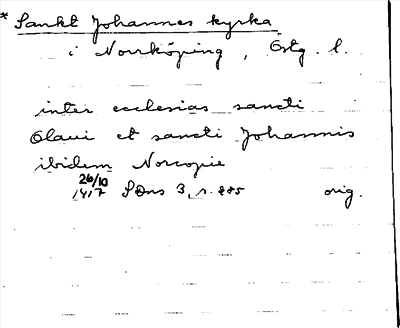 * Sankt Johannes kyrka
i Norrköping, Östg. l.
inter ecclesias sancti
Olaui et sancti Johannis
ibidem Norcopie
26/10
1417 SDns 3, s. 285 orig.